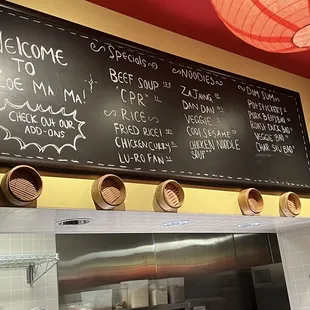 WELCOME
TO
ZOE MA MA!
CHECK OUT
OUR
ADD-ONS
SPECIALS
BEEF SOUP
"CPR"
RICE
FRIED RICE!
CHICKEN CURRY
LU-RO FAN
NOODLES
ZA JANG
DAN DAN
VEGGIE
COOL SESAME
CHICKEN NOODLE
SOUP
DIM SUM
POTSTICKERS
PORK BAO
ROAST DUCK BAO
VEGGIE BAO
CHAR SIU BAO